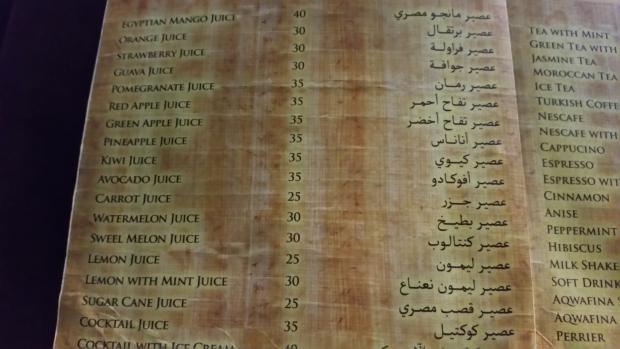 EGYPTIAN MANGO JUICE 40 عصير مانجو مصري
ORANGE JUICE 30 عصير برتقال
STRAWBERRY JUICE 30 عصير فراولة
GUAVA JUICE 30 عصير جوافة
POMEGRANATE JUICE 35 عصير رمان
RED APPLE JUICE 35 عصير تفاح أحمر
GREEN APPLE JUICE 35 عصير تفاح أخضر
PINEAPPLE JUICE 35 عصير أناناس
KIWI JUICE 35 عصير كيوي
AVOCADO JUICE 35 عصير أفوكادو
CARROT JUICE 25 عصير جزر
WATERMELON JUICE 30 عصير بطيخ
SWEEL MELON JUICE 30 عصير كنتالوب
LEMON JUICE 25 عصير ليمون
LEMON WITH MINT JUICE 30 عصير ليمون نعناع
SUGAR CANE JUICE 25 عصير قصب مصري
COCKTAIL JUICE 35 عصير كوكتيل
COCKTAIL WITH ICE CREAM 40
TEA WITH MINT
GREEN TEA WITH
JASMINE TEA
MOROCCAN TEA
ICE TEA
TURKISH COFFE
NESCAFE
NESCAFE WITH
CAPPUCINO
ESPRESSO
ESPRESSO WIT
CINNAMON
ANISE
PEPPERMINT
HIBISCUS
MILK SHAKE
SOFT DRINK
AQWAFINA S
AQWAFINA
PERRIER